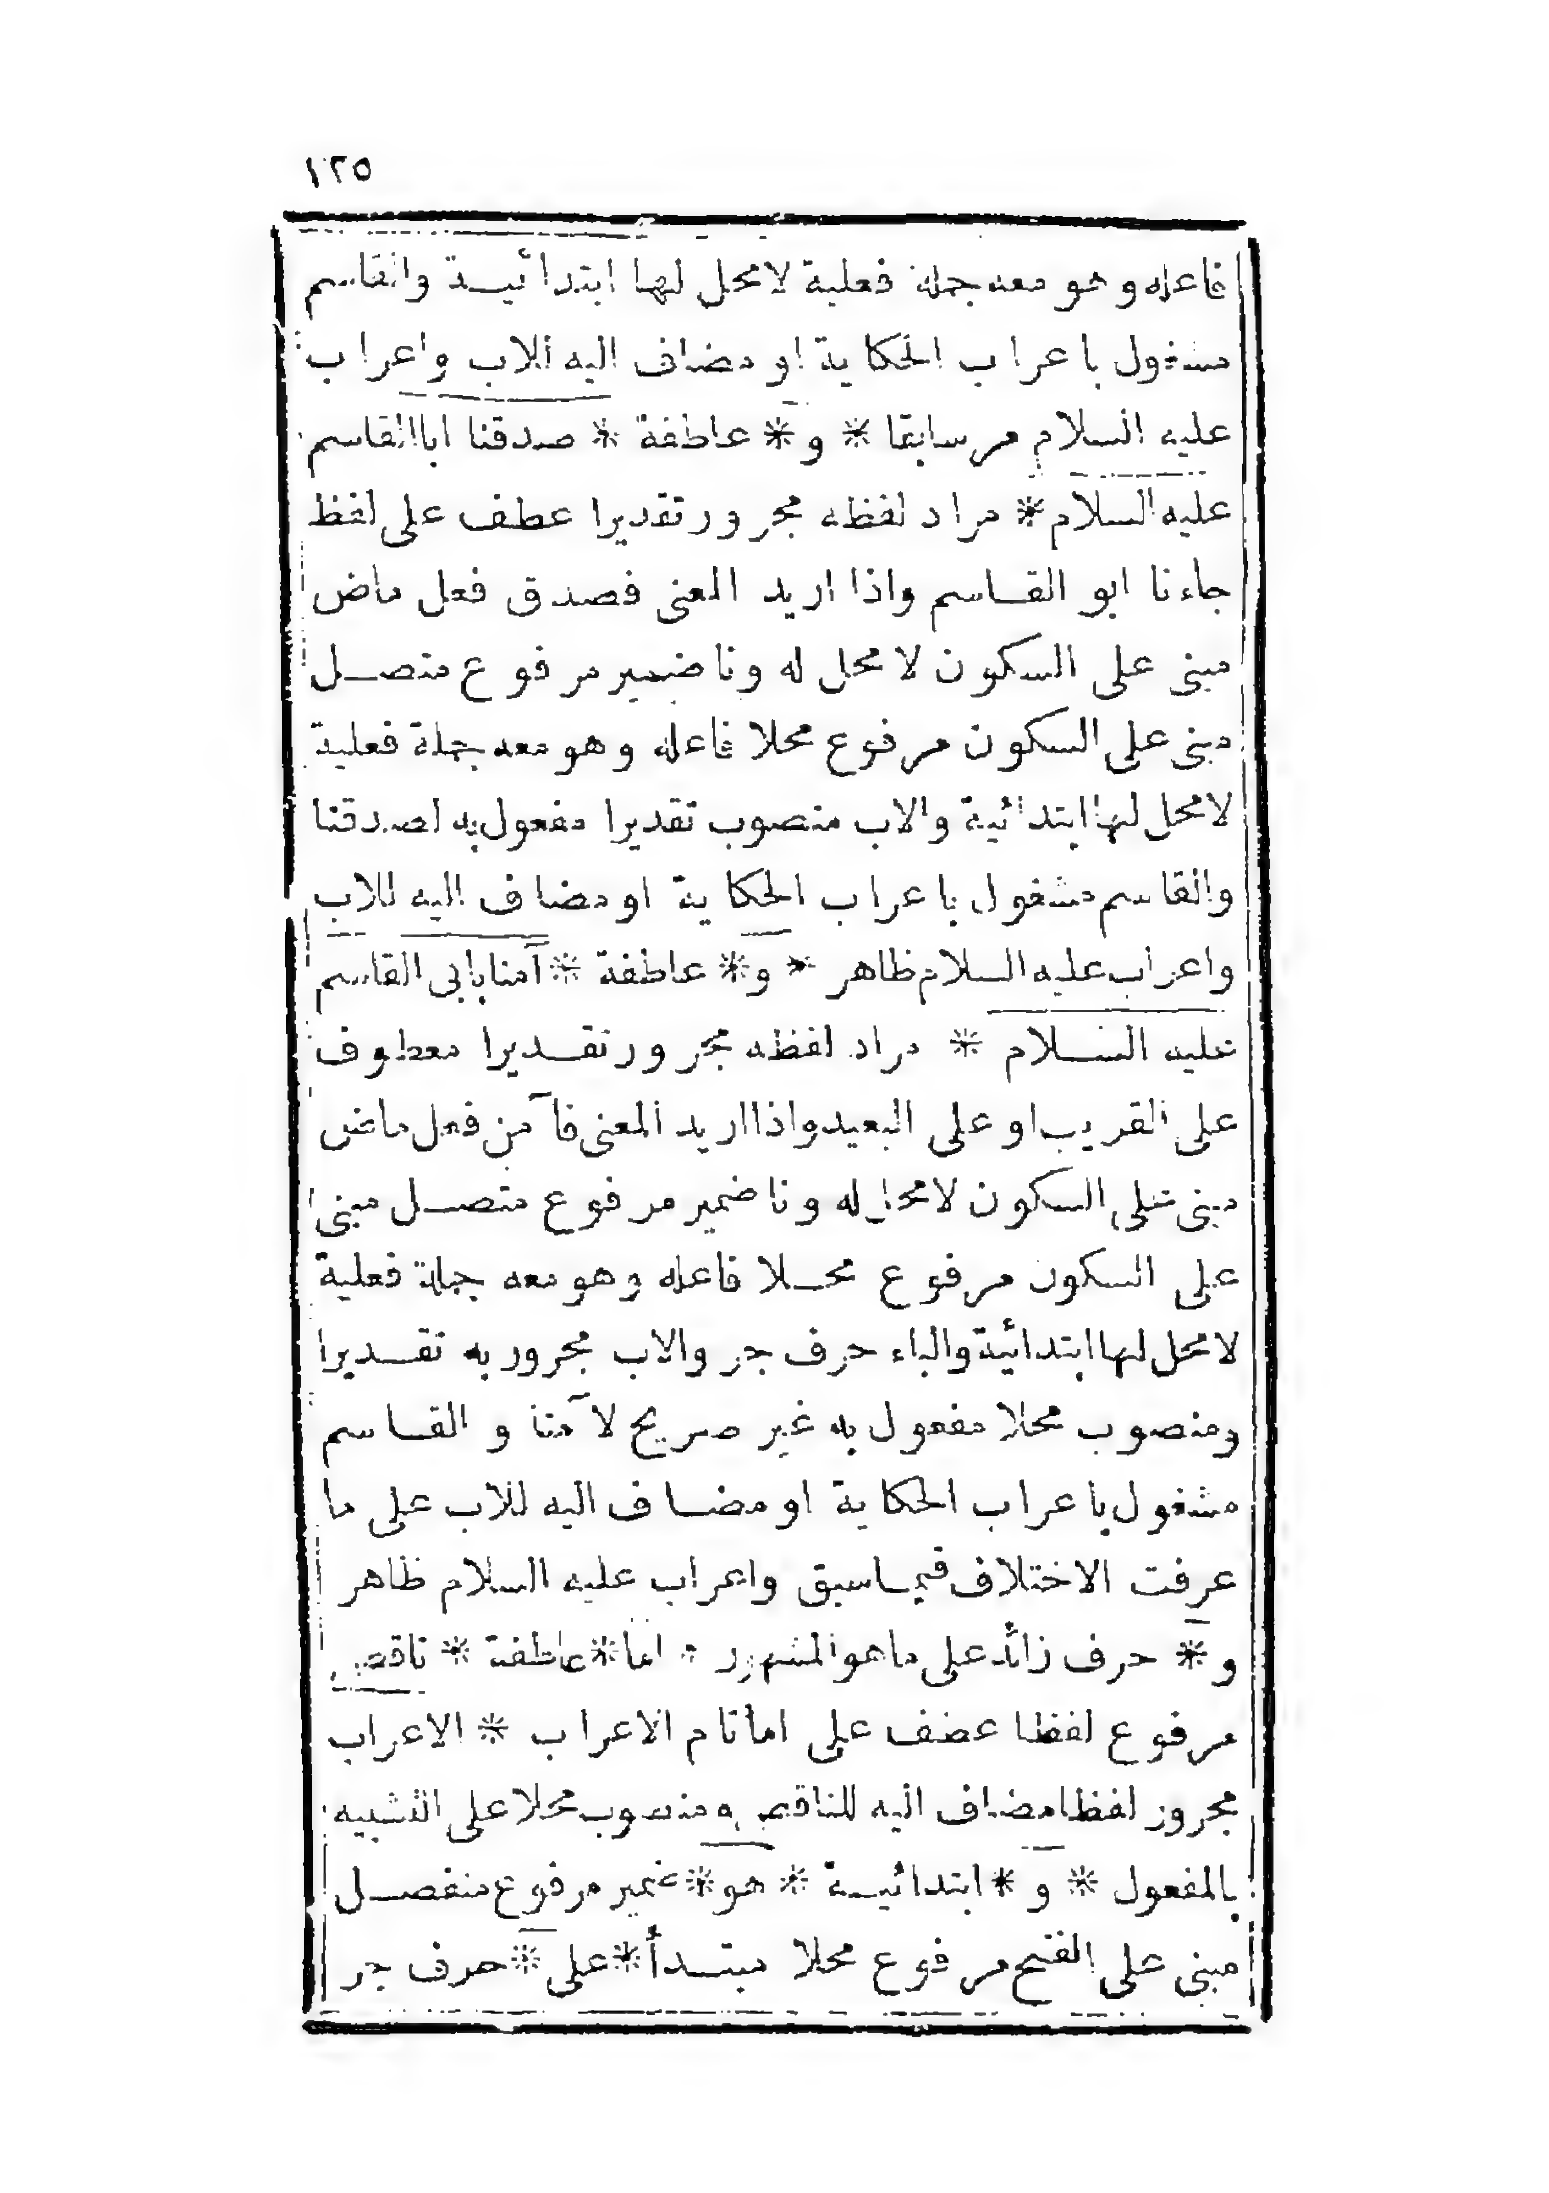 ١٢٥
فاعله وهو معه جملة فعلية لامحل لها ابتدائية والقاسم
مشغول باعراب الحكاية او مضاف اليه للاب واعراب
عليه السلام مر سابقا * و * عاطفة * صدقنا اباالقاسم
عليه السلام * مراد لفظه مجرور تقديرا عطف على لفظ
جاءنا ابو القاسم واذا اريد المعنى فصدق فعل ماض
مبنى على السكون لا محل له ونا ضمير مرفوع متصل
مبنى على السكون مرفوع محلا فاعله وهو معه جملة فعلية
لامحل لها ابتدائية والاب منصوب تقديرا مفعول به لصدقنا
والقاسم مشغول باعراب الحكاية او مضاف اليه للاب
واعراب عليه السلام ظاهر * و * عاطفة * آمنا بابى القاسم
عليه السلام * مراد لفظه مجرور تقديرا معطوف
على القريب او على البعيد واذا اريد المعنى فآ من فعل ماض
مبنى على السكون لامحل له ونا ضمير مرفوع متصل مبنى
على السكون مرفوع محلا فاعله وهو معه جملة فعلية
لامحل لها ابتدائية والباء حرف جر والاب مجرور به تقديرا
ومنصوب محلا مفعول به غير صريح لآ منا و القاسم
مشغول باعراب الحكاية او مضاف اليه للاب على ما
عرفت الاختلاف فيما سبق واعراب عليه السلام ظاهر
و * حرف زائد على ماهو المشهور * اما * عاطفة * ناقص
مرفوع لفظا عضف على اما تام الاعراب * الاعراب
مجرور لفظا مضاف اليه للناقص ومنصوب محلا على التشبيه
بالمفعول * و * ابتدائية * هو * ضمير مرفوع منفصل
مبنى على الفتح مرفوع محلا مبتدأ * على * حرف جر